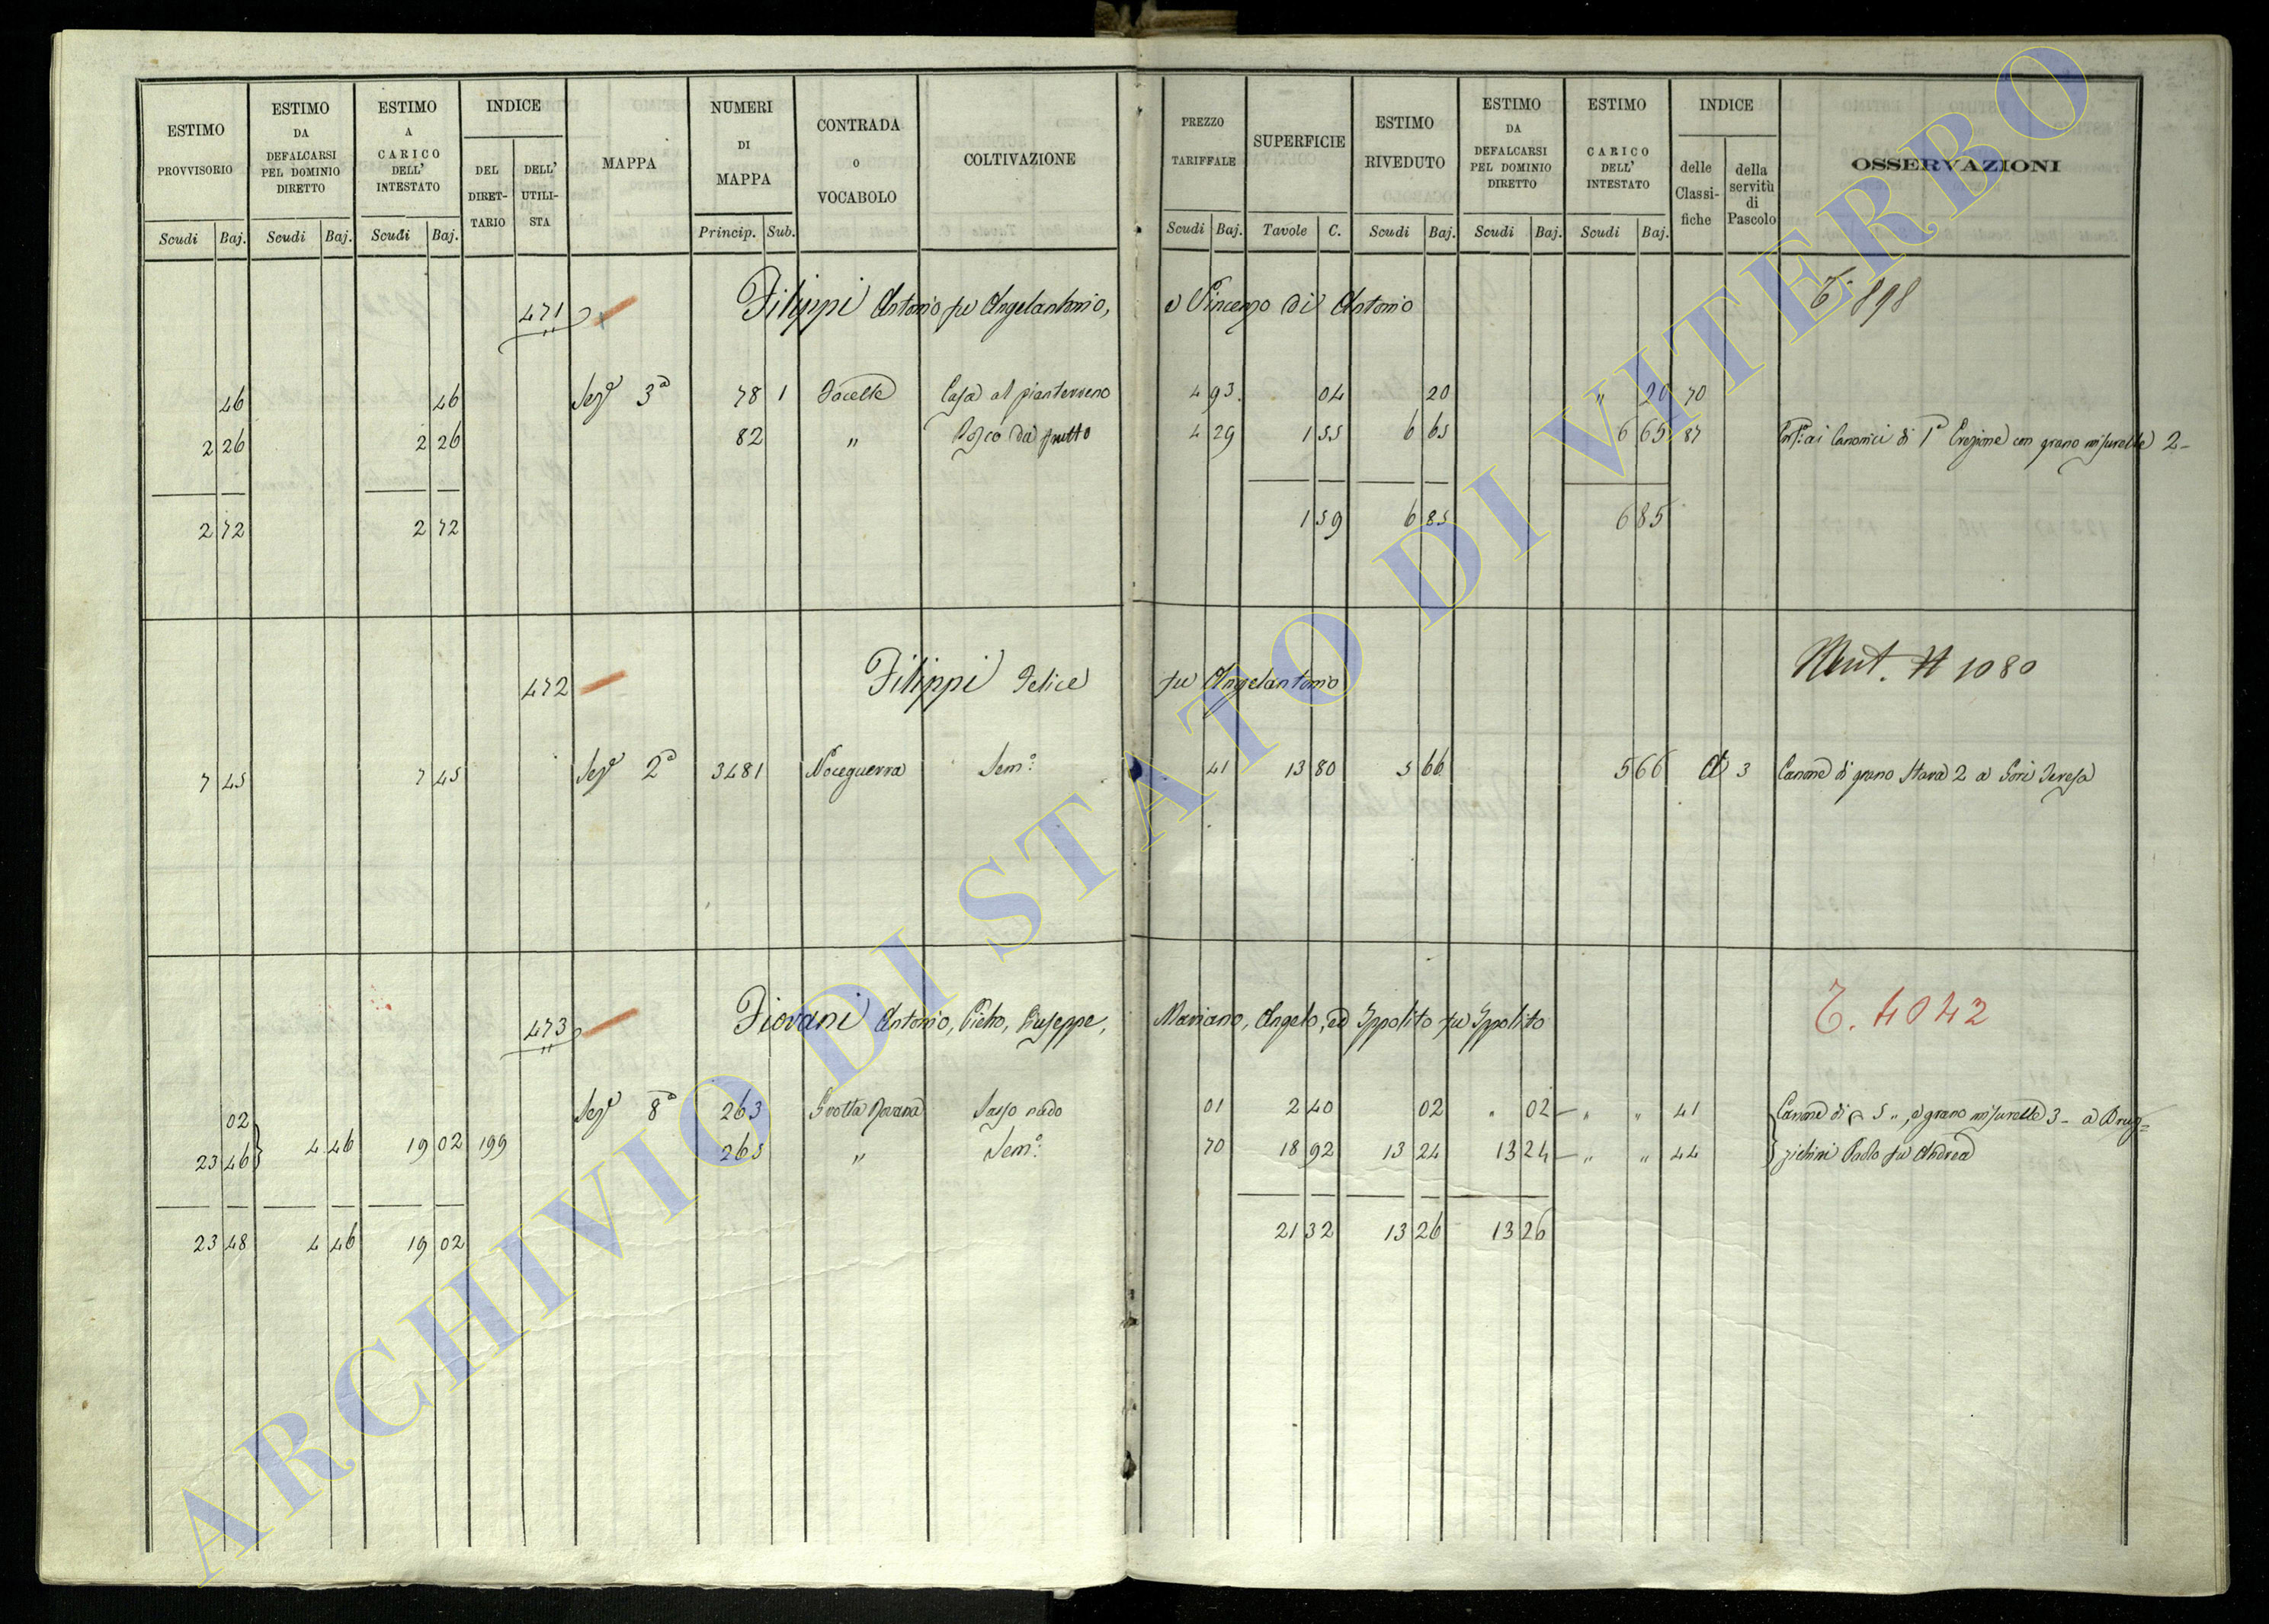 ESTIMO PROVVISORIO Scudi Baj.
ESTIMO DA DEFALCARSI PEL DOMINIO DIRETTO Scudi Baj.
ESTIMO A CARICO DELL' INTESTATO Scudi Baj.
INDICE DEL DIRETTARIO DELL' UTILISTA
MAPPA
NUMERI DI MAPPA Princip. Sub.
CONTRADA O VOCABOLO
COLTIVAZIONE
PREZZO TARIFFALE Scudi Baj.
SUPERFICIE Tavole C.
ESTIMO RIVEDUTO Scudi Baj.
ESTIMO DA DEFALCARSI PEL DOMINIO DIRETTO Scudi Baj.
ESTIMO A CARICO DELL' INTESTATO Scudi Baj.
INDICE delle Classifiche della servitù di Pascolo
OSSERVAZIONI
471 Filippi Antonio fu Angelantonio, e Vincenzo di Antonio T. 898
46 46 Sezᵉ 3ª 78 1 Casa al pianterreno 4 93 04 20 " 20 70
2 26 2 26 82 " Bosco da frutto 4 29 1 55 6 65 6 65 87 ai Canonici di 1ª Erezione con grano misurelle 2 -
2 72 2 72 1 59 6 85 6 85
472 Filippi Felice fu Angelantonio Mut. N 1080
7 45 7 45 Sezᵉ 2ª 3481 Noceguerra Semᵒ 41 13 80 5 66 5 66 3 Canone di grano Stara 2 a Gori Teresa
473 Fiovani Antonio, Pietro, Giuseppe, Mariano, Angelo, ed Ippolito fu Ippolito T. 4042
02 Sezᵉ 8ª 263 Grotta Sasso nudo 01 2 40 02 " 02 - " " 41 Canone di 5 ", e grano misurelle 3 - a Brug=
23 46 4 46 19 02 199 265 " Semᵒ 70 18 92 13 24 13 24 - " " 44 zichini Paolo fu Andrea
23 48 4 46 19 02 21 32 13 26 13 26
ARCHIVIO DI STATO DI VITERBO